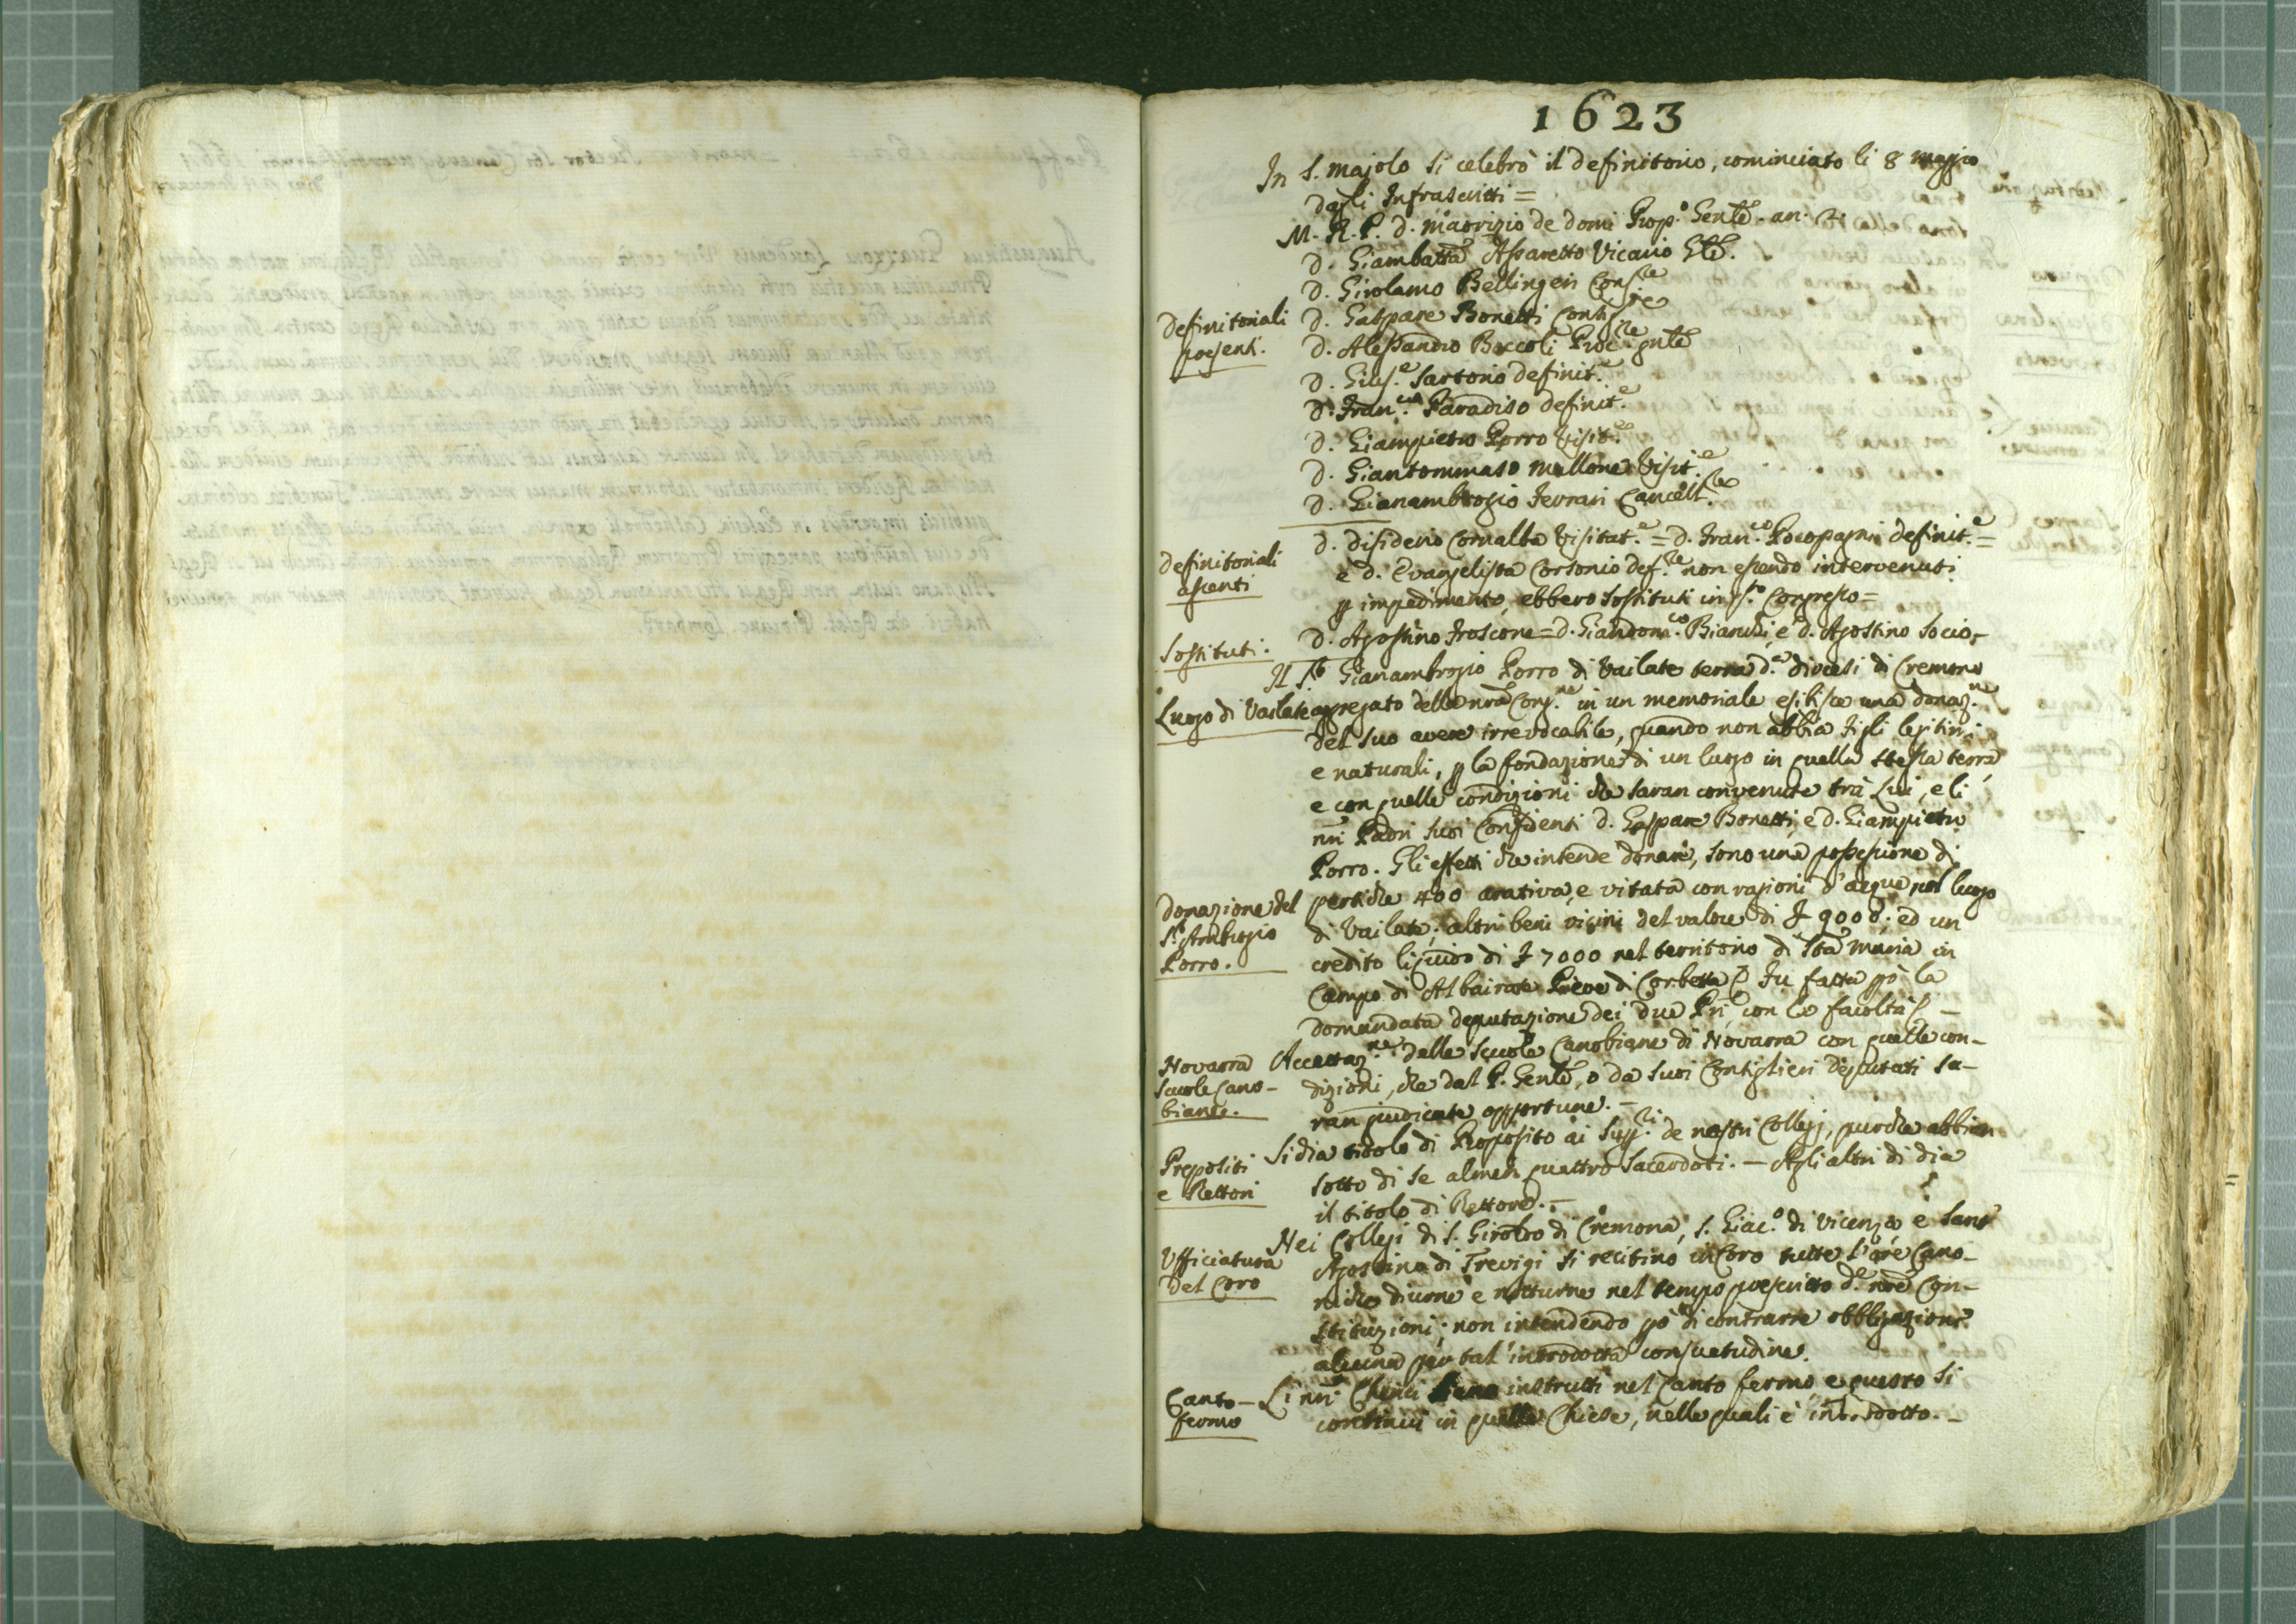 1623
In S. Majolo si celebrò il definitorio, cominciato li 8 maggio
dagli Infrascritti =
M. R. P. D. Maorizio de domi Prop.o Genle. an. 2.
D. Giambatta Assaretto Vicario Gle.
D. Girolamo Bellingeri Cons.re
Definitoriali
presenti.
D. Gaspare Bonetti Consig.re
D. Alessandro Boccoli Proc.re gnle
D. Gius.e Sartorio definit.e
D. Fran.co Paradiso definit.e
D. Giampietro Porro Visit.e
D. Giantommaso Mallone Visit.e
D. Gianambrogio Ferrari Cancell.re
Definitoriali
assenti
D. Disiderio Cornalba Visitat.e = D. Fran.co Pocopagni definit.e =
e D. Evangelista Corsonio def.re non essendo intervenuti
p impedimento, ebbero sostituti in qsto Congresso =
Sostituti.
D. Agostino Froscone = D. Giandom.co Bianchi, e D. Agostino Socio,
Luogo di Vailate
Il Sr Gianambrogio Porro di Vailate terra d.a diocesi di Cremona
aggregato della nra Cong.ne in un memoriale esibisce una donaz.ne
del suo avere irrevocabile, quando non abbia figli legitimi
e naturali, p la fondazione di un luogo in quella stessa terra
e con quelle condizioni che saran convenute trà Lui, e li
nri Padri suoi Confidenti D. Gaspare Bonetti, e D. Giampietro
Porro. Gli effetti che intende donare, sono una possessione di
Donazione del
Sr Ambrogio
Porro.
pertiche 400 arativa, e vitata con ragioni d'acque nel luogo
di Vailate; altri beni vicini del valore di £ 9000; ed un
credito liquido di £ 7000 nel territorio di Sta Maria in
Campo di Albairate Pieve di Corbetta Fu fatta pò la
domandata deputazione dei due Pri con le facoltà
Novarra
Scuole Cano-
biane.
Accettaz.ne delle Scuole Canobiane di Novarra con quelle con-
dizioni, che dal P. Genle, o da suoi Consiglieri deputati sa-
ran judicate opportune. -
Prepositi
e Rettori
Si dia titolo di Proposito ai Supp.ri de nostri Collegj, purche abbian
sotto di se almen quattro Sacerdoti. - Agli altri di dia
il titolo di Rettore. -
Ufficiatura
del Coro
Nei Collegi di S. Girolmo di Cremona, S. Giac.o di Vicenza e Sant'
Agostino di Trevigi si recitino in Coro tutte l'ore Cano-
niche diurne e notturne nel tempo prescritto d.e nre Con-
stituzioni; non intendendo pò di contrarre obbligazione
alcuna per tal' introdotta consuetudine.
Canto -
fermo
Li nri Cherici siano instrutti nel Canto fermo, e questo si
continui in quelle Chiese, nelle quali è introdotto. -